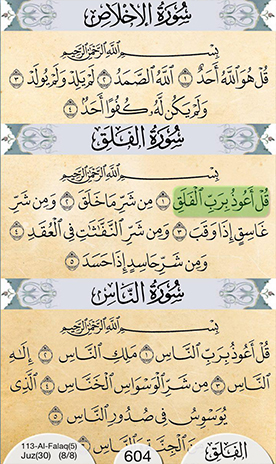 سُورَةُ الإِخْلَاصِ
بِسْمِ اللَّهِ الرَّحْمَٰنِ الرَّحِيمِ
قُلْ هُوَ اللَّهُ أَحَدٌ ١ اللَّهُ الصَّمَدُ ٢ لَمْ يَلِدْ وَلَمْ يُولَدْ ٣
وَلَمْ يَكُن لَّهُ كُفُوًا أَحَدٌ ٤
سُورَةُ الْفَلَقِ
بِسْمِ اللَّهِ الرَّحْمَٰنِ الرَّحِيمِ
قُلْ أَعُوذُ بِرَبِّ الْفَلَقِ ١ مِن شَرِّ مَا خَلَقَ ٢ وَمِن شَرِّ
غَاسِقٍ إِذَا وَقَبَ ٣ وَمِن شَرِّ النَّفَّٰثَٰتِ فِي الْعُقَدِ ٤
وَمِن شَرِّ حَاسِدٍ إِذَا حَسَدَ ٥
سُورَةُ النَّاسِ
بِسْمِ اللَّهِ الرَّحْمَٰنِ الرَّحِيمِ
قُلْ أَعُوذُ بِرَبِّ النَّاسِ ١ مَلِكِ النَّاسِ ٢ إِلَٰهِ
النَّاسِ ٣ مِن شَرِّ الْوَسْوَاسِ الْخَنَّاسِ ٤ الَّذِي
يُوَسْوِسُ فِي صُدُورِ النَّاسِ
الْجِنَّةِ
113-Al-Falaq(5)
Juz(30) (8/8)
604
الفلق